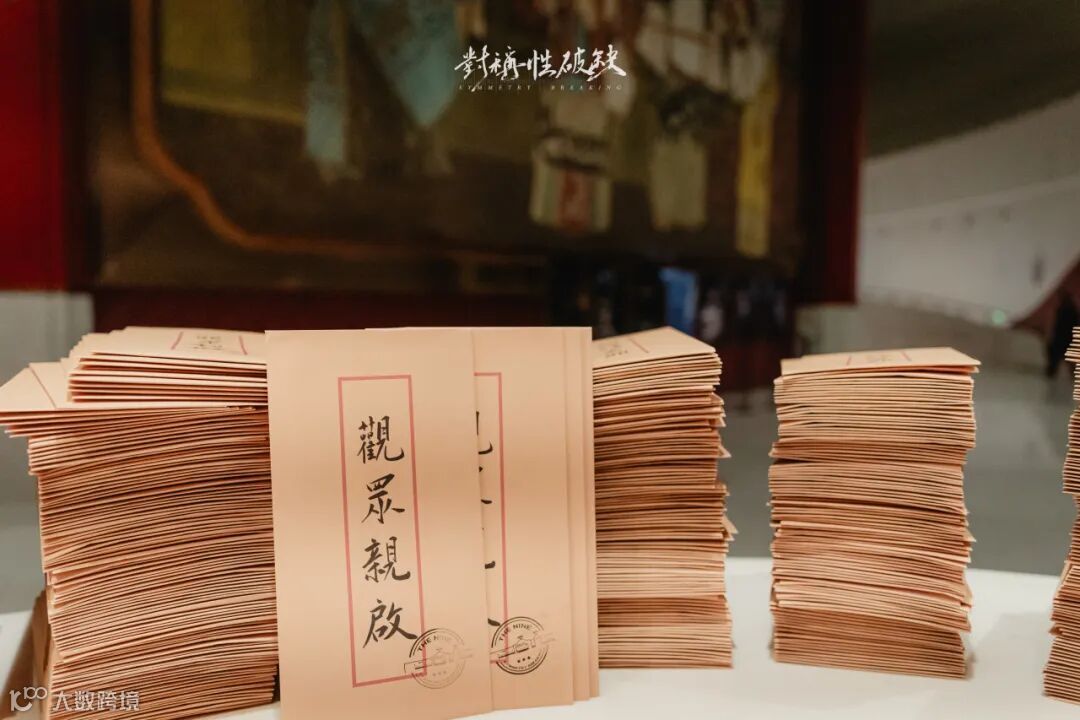 對稱性破缺
SYMMETRY BREAKING
觀眾親啟
THE NINE
THE NINE
大数跨境